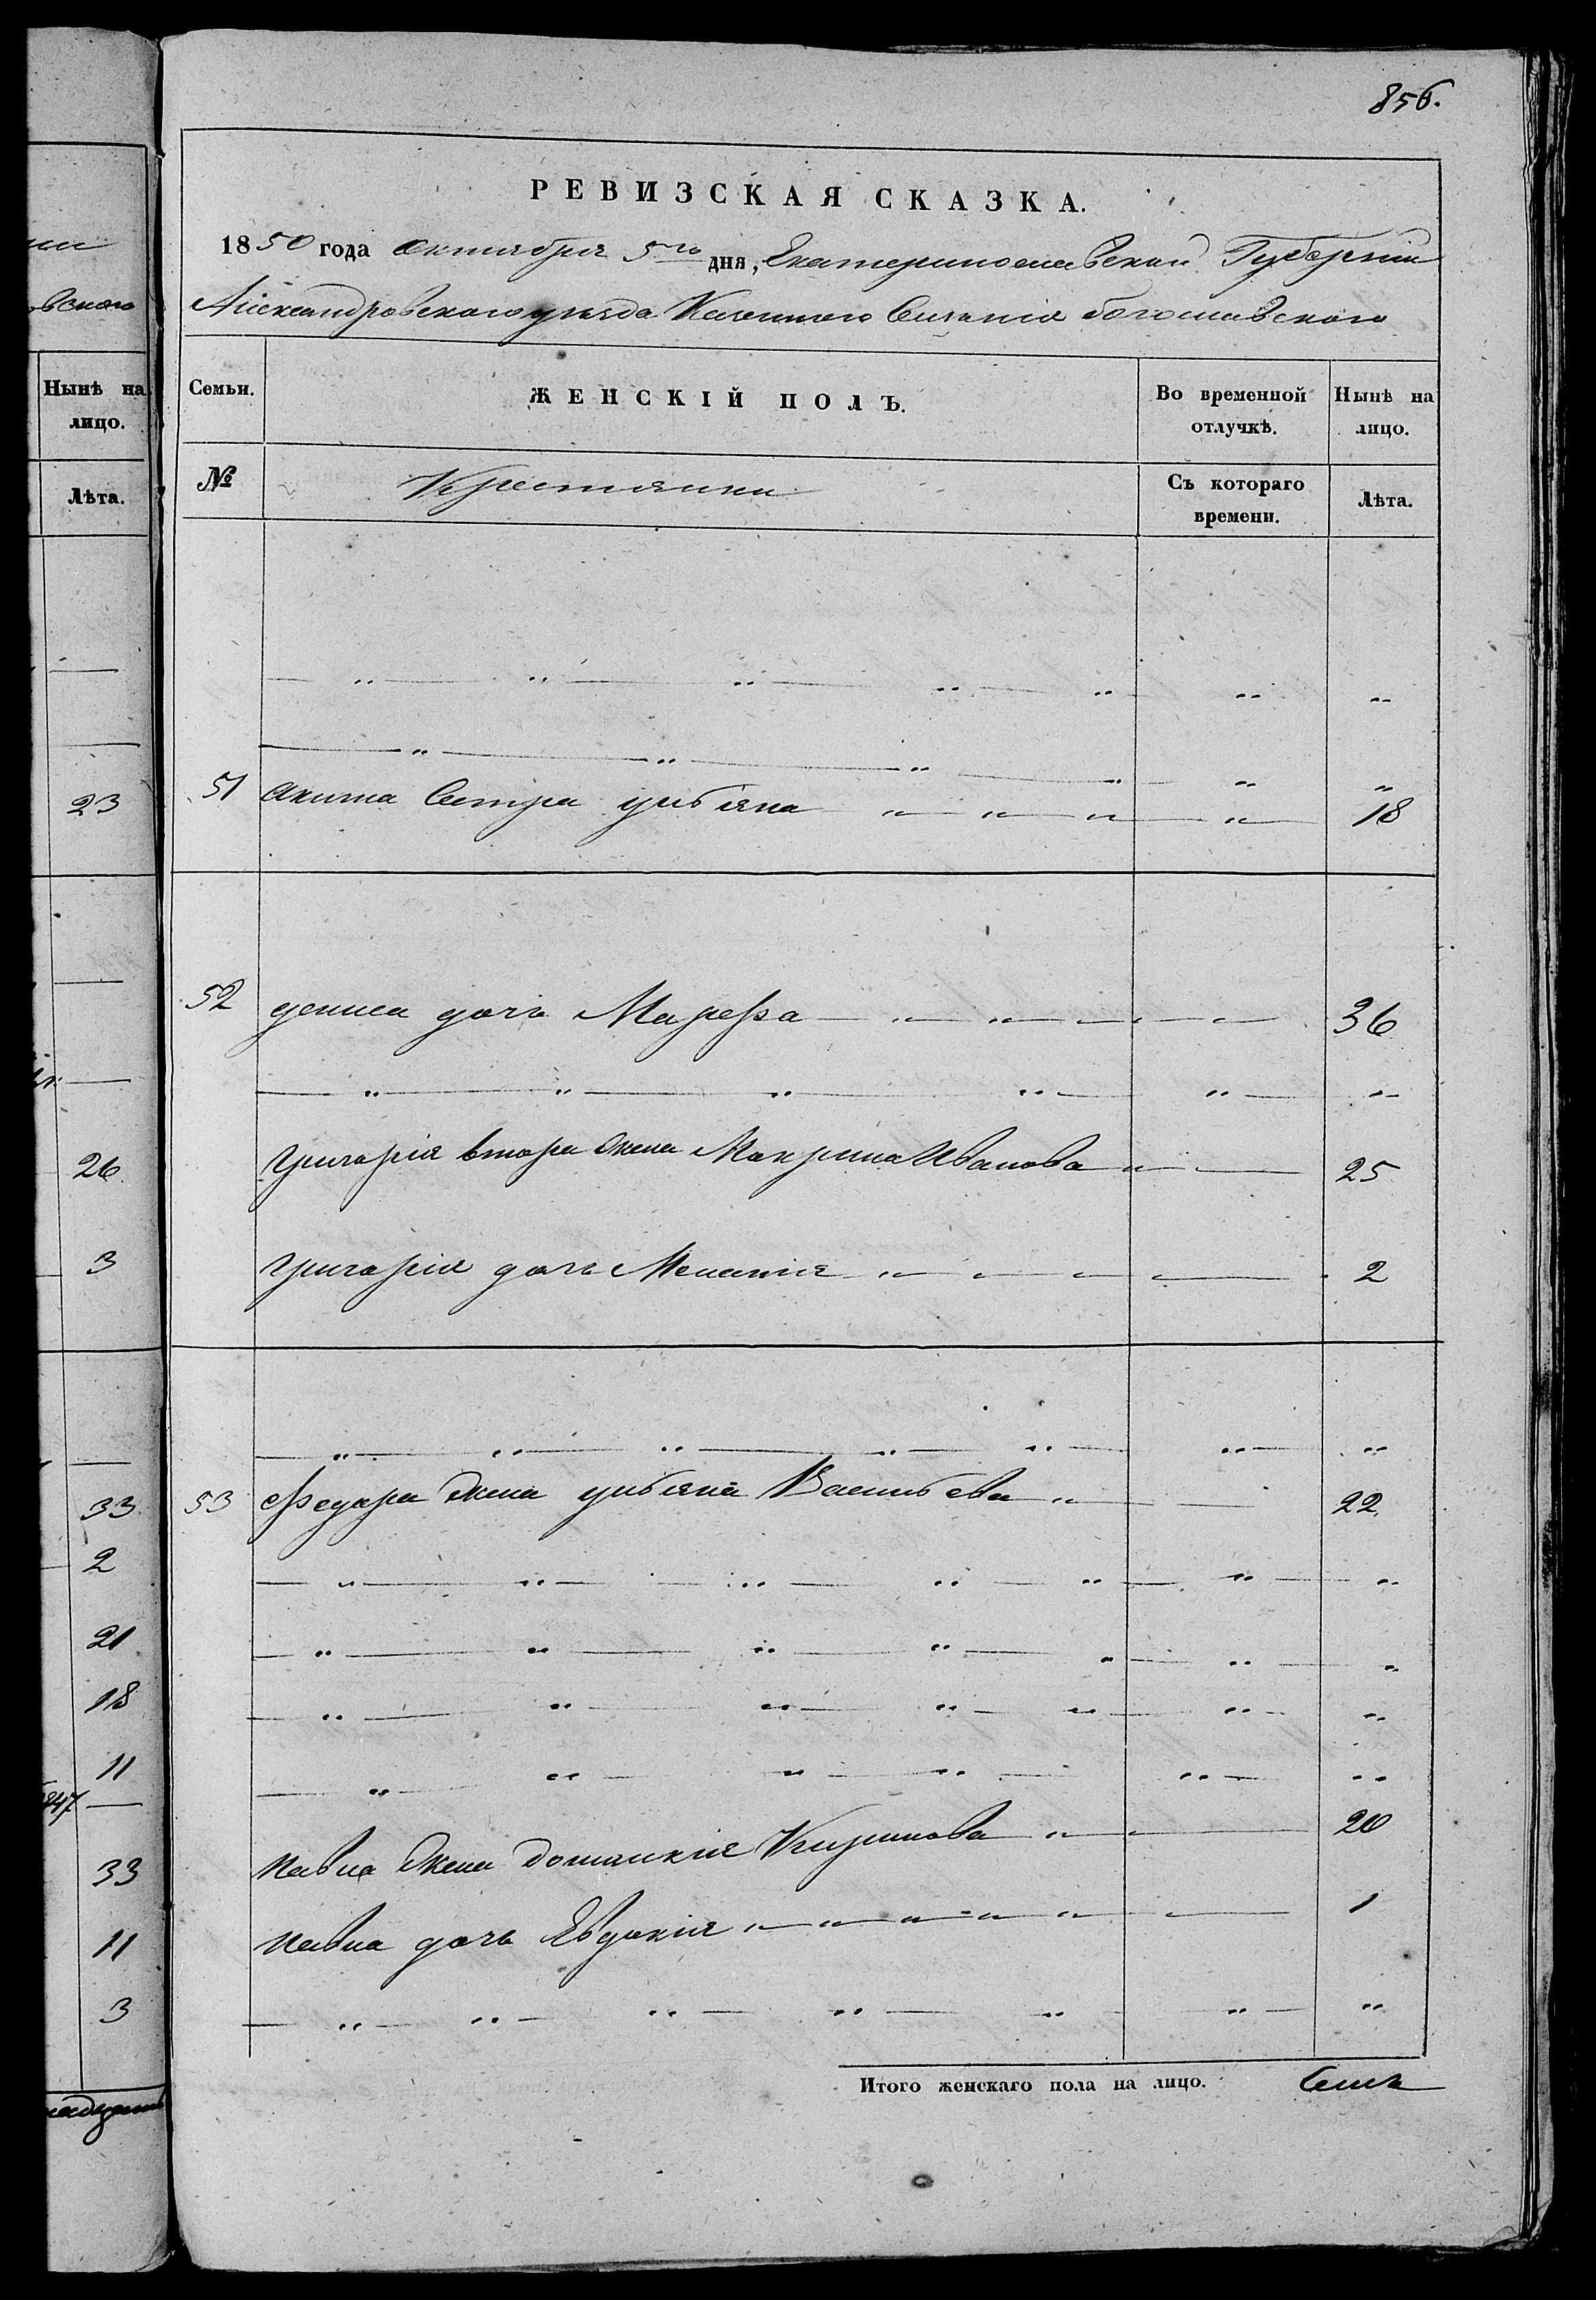 856.
РЕВИЗСКАЯ СКАЗКА.
1850 года октября 5го дня, Екатеринославской Губерніи
Александровского уезда Казенного Селенія богославского
Семьи. ЖЕНСКІЙ ПОЛЪ. Во временной отлучкѣ. Нынѣ на лицо.
№ Крестянки Съ котораго времени. Лѣта.
51 акима Сестра улияна 18
52 дениса дочь Марефа 36
григория втора жена Макрина Иванова 25
григория дочь Меланія 2
53 Федора жена улияна Васильева 22
павла жена домникія Кирилова 20
павла дочь Евдокія 1
Итого женскаго пола на лицо. Семь
вского
Нынѣ на
лицо.
Лѣта.
23
26
3
33
2
21
18
11
847
33
11
3